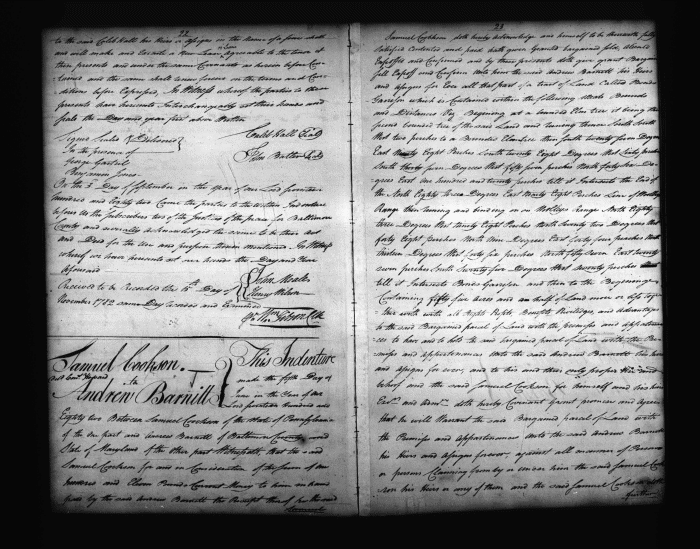 22
to the said Caleb Hall his Heirs or Assigns in the Name of a fine
and will make and Execute a New Lease agreeable to the tenor of
these presents and under the same Covenants as herein before
and the same shall renew forever on the terms and Con
ditions before Expressed, In Witness whereof the parties to these
presents have hereunto Interchangeably set their hands and
seals the Day and year first above Written
Signd Seald & Deliverd
In the presence of
George
Benjamin Jones
Caleb Hall Seal
John Seal
On the 3 Day of September in the year of our Lord seventeen
hundred and Eighty two Came the parties to the within Indenture
before Us the Subscribers two of the Justices of the peace for Baltimore
County and severally acknowledged the same to be their act
and Deed for the Use and purpose therein mentioned. In Witness
whereof we have hereunto set our hands the Day and Year
aforesaid
John Moale
Henry Wilson
Received to be Recorded the Day of
November 1782 same Day Recorded and Examined
Wm Gibson Clk
Samuel Cookson.
to
Andrew Barnitt
This Indenture
made the fifth Day of
June in the Year of our
Lord seventeen hundred and
Eighty two Between Samuel Cookson of the State of Pennsylvania
of the one part and Andrew Barnitt of Baltimore County and
State of Maryland of the other part Witnesseth that the said
Samuel Cookson for and in Consideration of the sum of one
hundred and Eleven Pounds Current Money to him in hand
paid by the said Andrew Barnitt the Receipt thereof he the said
Samuel
23
Samuel Cookson doth hereby acknowledge and himself to be therewith fully
satisfied contented and paid hath given Granted bargained sold Aliened
Enfeoffed and Confirmed and by these presents doth give grant Bargain
Sell Enfeoff and Confirm Unto him the said Andrew Barnitt his Heirs
and Assigns for Ever all that part of a tract of Land Called Bonds
Garrison which is Contained within the following Metes Bounds
and Distances Viz. Begining at a bounded Elm tree it being the
bounded tree of the said Land and runing thence South
West two perches to a Bounded then South twenty four Degrees
East Eight Perches South twenty Eight Degrees West perches
South thirty four Degrees West fifty five perches North forty Deg
rees East One hundred and twenty perches till it Intersects the End of
the North Eighty three Degrees East Ninety Eight Perches Line of
Range then runing and binding on on Range North Eighty
three Degrees West ninety Eight Perches North Twenty two Degrees West
forty Eight perches North Nine Degrees East forty four perches
thirteen Degrees West forty six perches North fifty seven East twenty
seven perches South Twenty four Degrees West twenty perches
till it Intersects Bonds Garrison and then to the Begining
Containing fifty five Acres and an half of Land more or less toge
ther with with all Rights Rights Benefits Privileges, and advantage
to the said Bargained parcel of Land with the premises and appurtenan
ces To have and to hold the said bargained parcel of Land with the Pre
mises and appurtenances Unto the said Andrew Barnitt his heirs
and Assigns for ever, and to his and their only proper Use and
behoof and the said Samuel Cookson for himself and his heirs
Exrs and Admrs doth hereby Covenant Grant promise and Agree
that he will Warrant the said Bargained parcel of Land with
the Premises and Appurtenances Unto the said Andrew Barnitt
his Heirs and Assigns forever, against all manner of Person
or persons Claiming from by or under him the said Samuel Cook
son his Heirs or any of them and the said Samuel Cookson